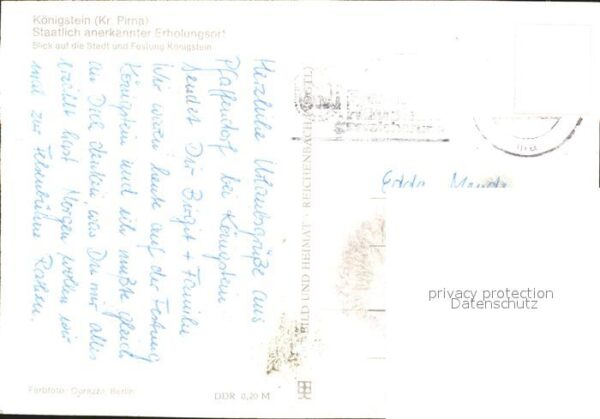 Königstein (Kr. Pirna)
Staatlich anerkannter Erholungsort
Blick auf die Stadt und Festung Königstein
Herzliche Urlaubsgrüße aus
Pfaffendorf bei Königstein
sendet Dir Birgit + Familie
Wir waren heute auf der Festung
Königstein und ich mußte gleich
an Dich denken, was Du mir alles
erzählt hast. Morgen wollen wir
mal zur Felsenbühne Rathen.
BILD UND HEIMAT · REICHENBACH
Edda
privacy protection
Datenschutz
Farbfoto: Berlin
DDR 0,20 M